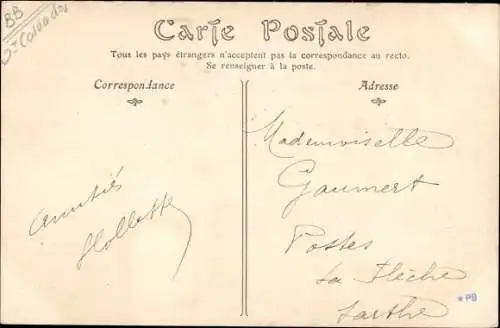 BB
D-Calvados
Carte Postale
Tous les pays étrangers n'acceptent pas la correspondance au recto.
Se renseigner à la poste.
Correspondance
Amitiés
Adresse
Mademoiselle
Gaumert
Postes
La Flèche
Sarthe
PB